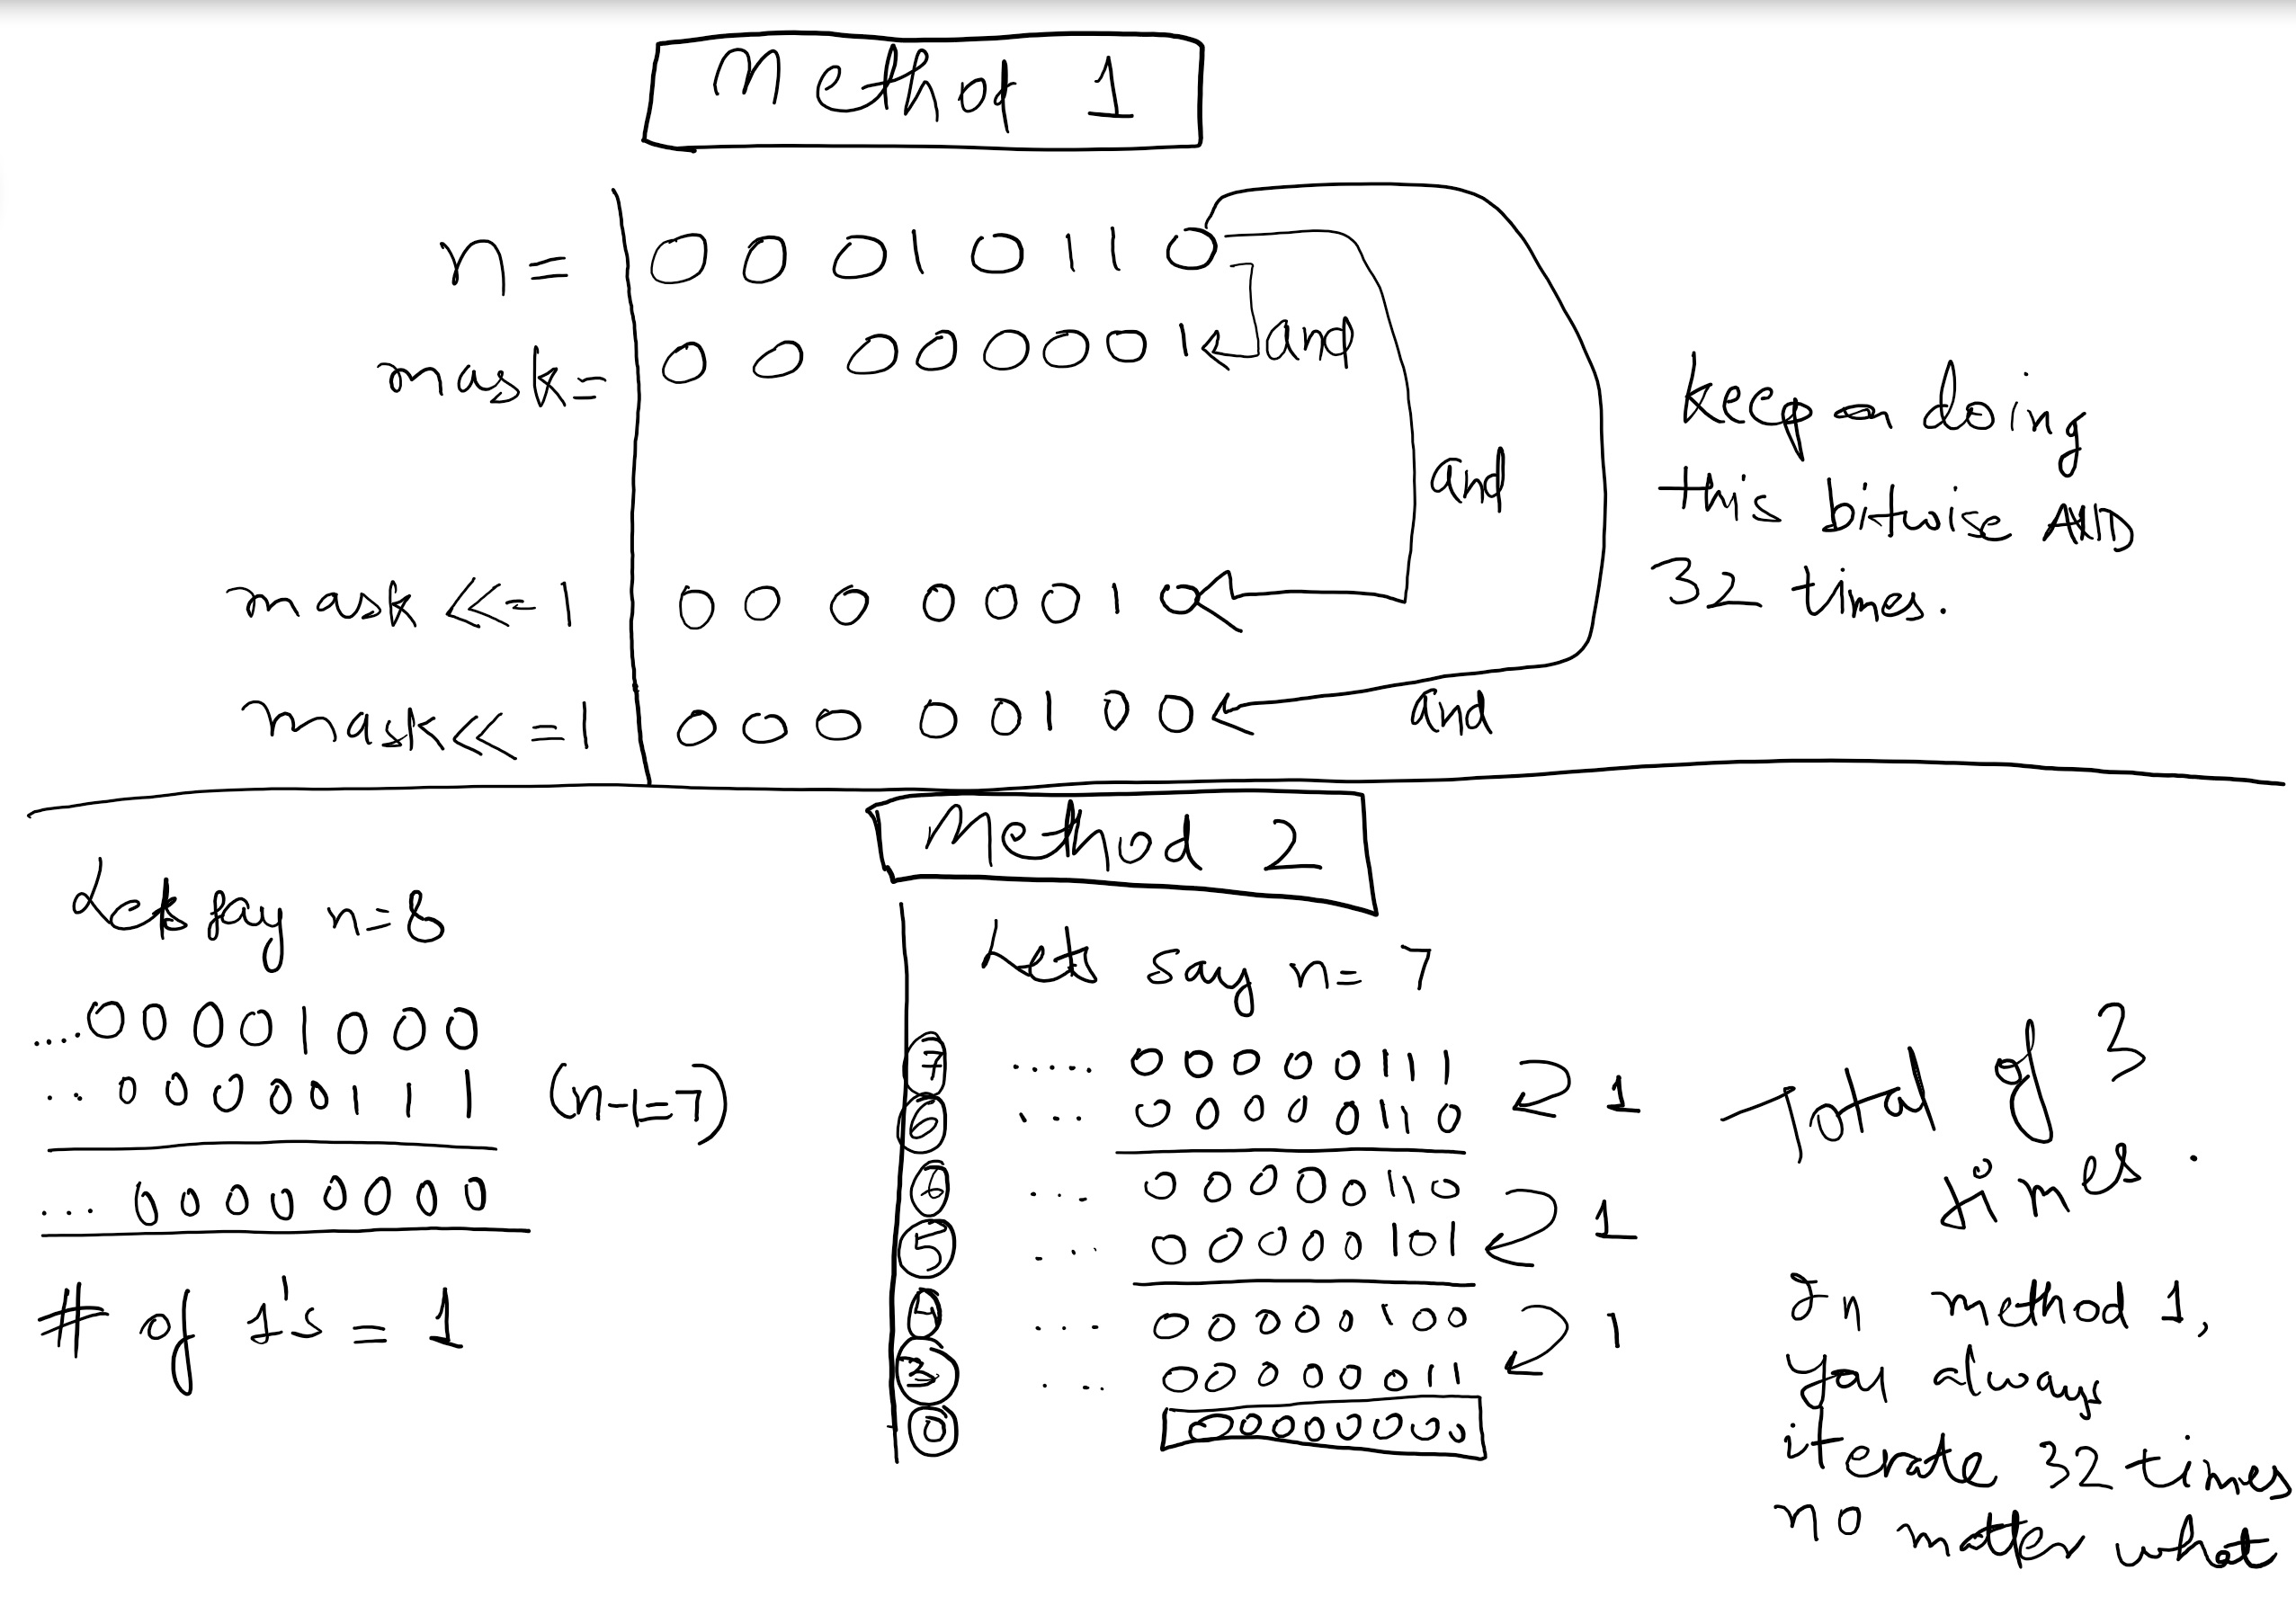 Method 1
n = 0 0 0 1 0 1 1 0
mask= 0 0 0 0 0 0 0 1 and
and
mask <<=1 0 0 0 0 0 0 1 0
mask<< =1 0 0 0 0 0 1 0 0 and
keep on doing
this bitwise AND
32 times.
Method 2
Lets say n=8
....0 0 0 0 1 0 0 0
... 0 0 0 0 0 1 1 1 (n-1=7)
... 0 0 0 0 0 0 0 0
# of 1's = 1
Lets say n= 7
7 ..... 0 0 0 0 0 1 1 1
6 .... 0 0 0 0 0 1 1 0 1
6 ... 0 0 0 0 0 1 1 0
5 ... 0 0 0 0 0 1 0 1 1
4 ... 0 0 0 0 0 1 0 0
3 ... 0 0 0 0 0 0 1 1 1
0 0 0 0 0 0 0 0 0
Total of 3
times.
In method 1,
you always
iterate 32 times
no matter what